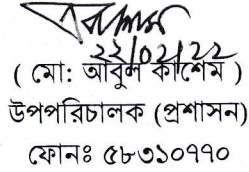 ২২/০২/২২
( মো: আবুল কাশেম )
উপপরিচালক (প্রশাসন)
ফোনঃ ৫৮৩১০৭৭০